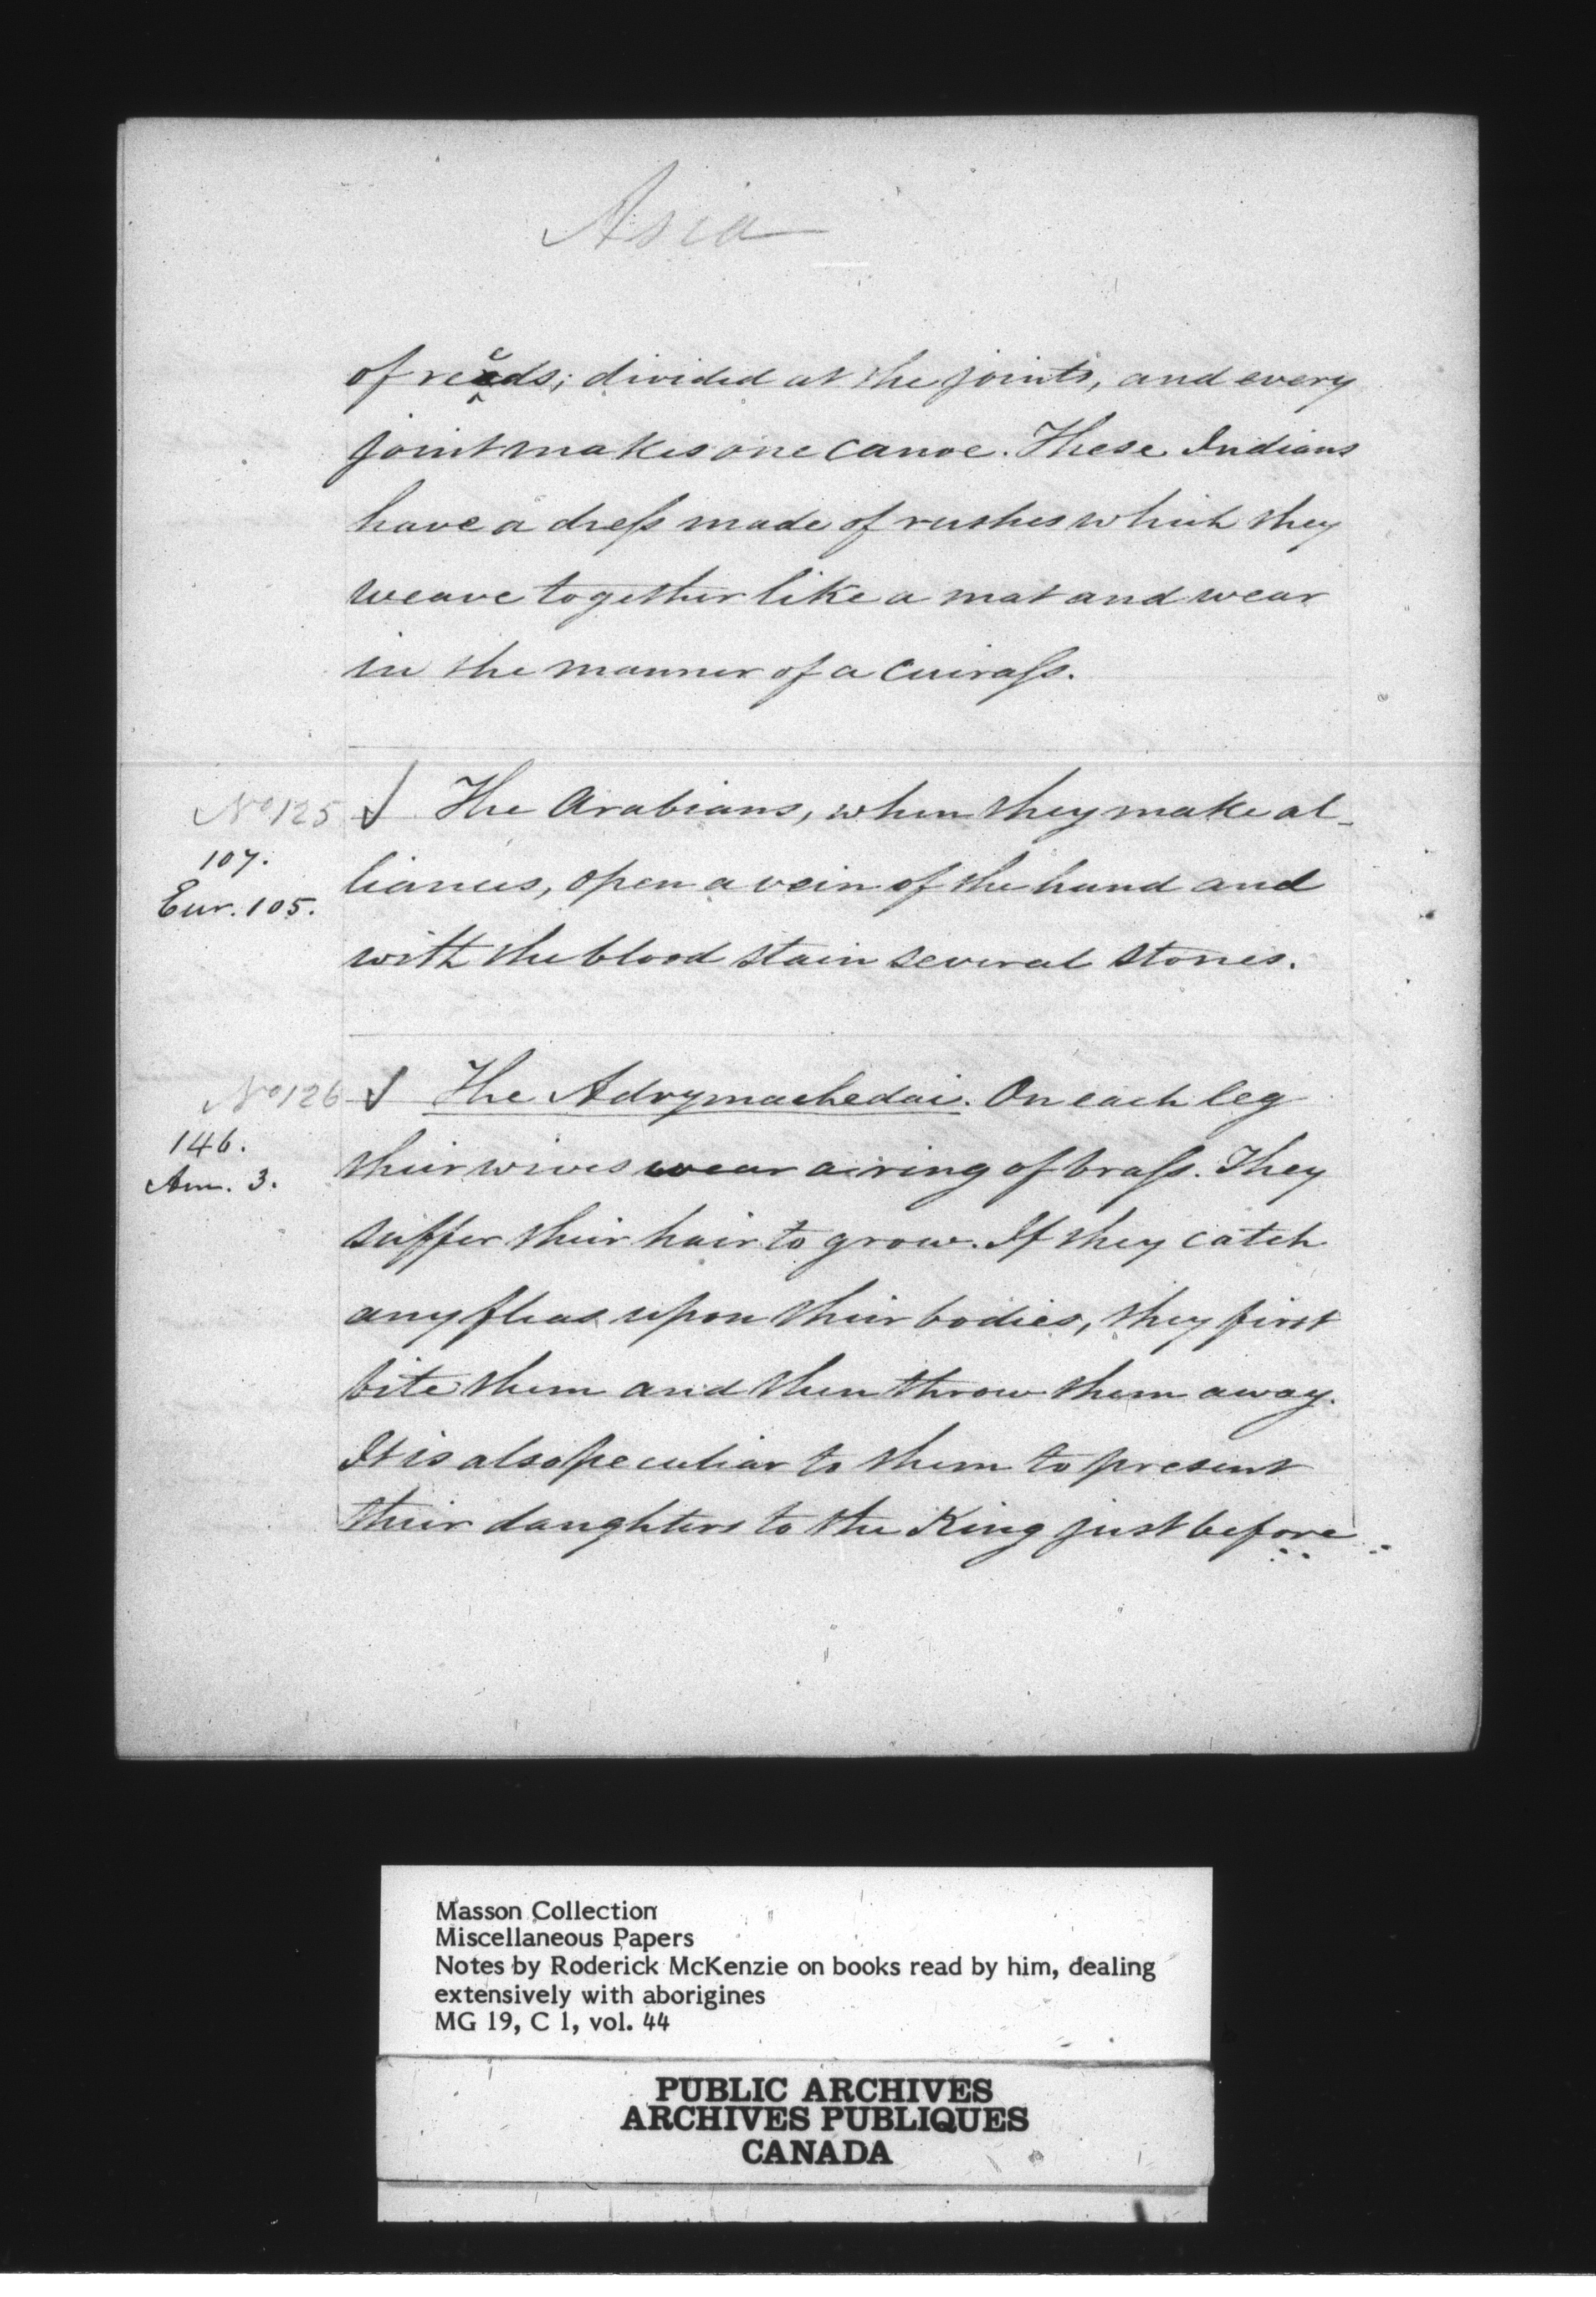 Asia
of reeds; divided at the joints, and every
joint makes one canoe. These Indians
have a dress made of rushes which they
weave together like a mat and wear
in the manner of a cuirass.
No 125
107.
Eur. 105.
The Arabians, when they make al-
liances, open a vein of the hand and
with the blood stain several stones.
No 126
146.
Am. 3.
The Adrymachedai. On each leg
their wives wear a ring of brass. They
suffer their hair to grow. If they catch
any fleas upon their bodies, they first
bite them and then throw them away.
It is also peculiar to them to present
their daughters to the King just before
Masson Collection
Miscellaneous Papers
Notes by Roderick McKenzie on books read by him, dealing
extensively with aborigines
MG 19, C 1, vol. 44
PUBLIC ARCHIVES
ARCHIVES PUBLIQUES
CANADA